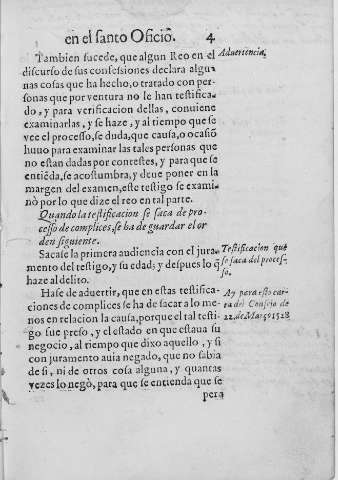 en el santo Oficiõ.
4
Tambien sucede, que algun Reo en el
Aduertencia.
discurso de sus confessiones declara algu
nas cosas que ha hecho, o tratado con per-
sonas que por ventura no le han testifica-
do, y para verificacion dellas, conuiene
examinarlas, y se haze, y al tiempo que se
vee el processo, se duda, que causa, o ocasiō
huuo para examinar las tales personas que
no estan dadas por contestes, y para que se
entiēda, se acostumbra, y deue poner en la
margen del examen, este testigo se exami-
nò por lo que dize el reo en tal parte.
Quando la testificacion se saca de pro-
cesso de complices, se ha de guardar el or
den siguiente.
Sacase la primera audiencia con el jura-
mento del testigo, y su edad; y despues lo q̃
haze al delito.
Testificacion que
se saca del proces-
so.
Hase de aduertir, que en estas testifica-
ciones de complices se ha de sacar a lo me-
nos en relacion la causa, porque el tal testi-
go fue preso, y el estado en que estaua su
negocio, al tiempo que dixo aquello, y si
con juramento auia negado, que no sabia
de si, ni de otros cosa alguna, y quantas
vezes lo negò, para que se entienda que se
Ay para esto car-
ta del Consejo de
22. de Março 1528
pera